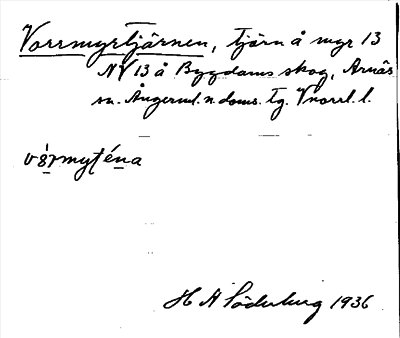 Vorrmyrtjärnen, tjärn å myr 13
NV 13 å Bygdams skog, Arnäs
sn. Ångerml. n. doms. tg. Vnorrl. l.
H A Söderberg 1936